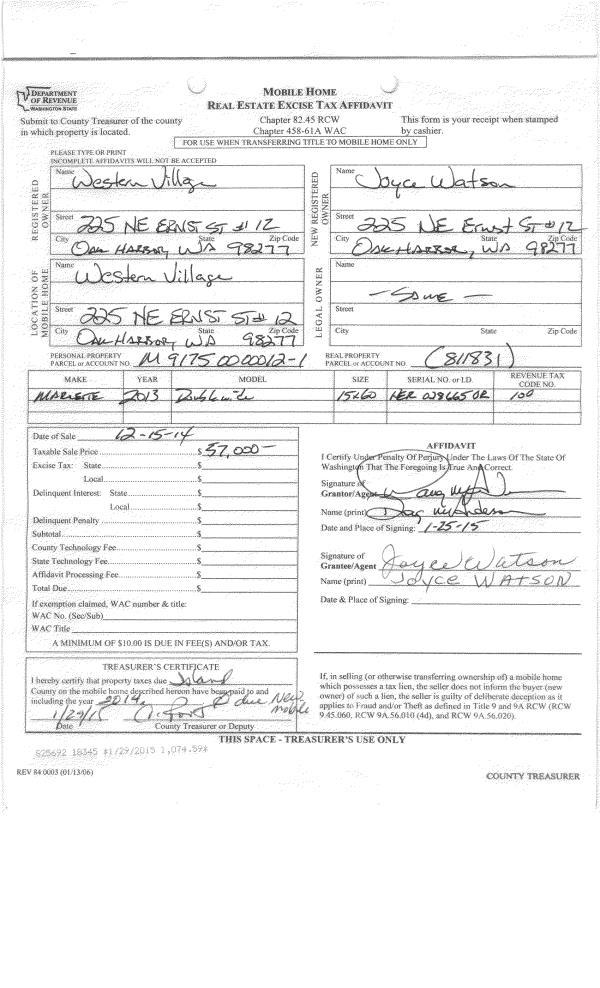 DEPARTMENT
OF REVENUE
WASHINGTON STATE
MOBILE HOME
REAL ESTATE EXCISE TAX AFFIDAVIT
Submit to County Treasurer of the county
in which property is located.
Chapter 82.45 RCW
Chapter 458-61A WAC
This form is your receipt when stamped
by cashier.
FOR USE WHEN TRANSFERRING TITLE TO MOBILE HOME ONLY
PLEASE TYPE OR PRINT
INCOMPLETE AFFIDAVITS WILL NOT BE ACCEPTED
REGISTERED OWNER
Name Western Village
Street 225 NE ERNST ST # 12
City State Zip Code
OAK HARBOR, WA 98277
NEW REGISTERED OWNER
Name Joyce Watson
Street 225 NE Ernst ST # 12
City State Zip Code
OAK HARBOR, WA 98277
LOCATION OF MOBILE HOME
Name Western Village
Street 225 NE ERNST ST # 12
City State Zip Code
OAK HARBOR WA 98277
LEGAL OWNER
Name
- SAME -
Street
City State Zip Code
PERSONAL PROPERTY
PARCEL or ACCOUNT NO. M 91750000012-1
REAL PROPERTY
PARCEL or ACCOUNT NO. (811831)
MAKE YEAR MODEL SIZE SERIAL NO. or I.D. REVENUE TAX CODE NO.
MARLETTE 2013 15x60 HER 028665OR 100
Date of Sale 12-15-14
Taxable Sale Price $ 57,000 -
Excise Tax: State $
Local $
Delinquent Interest: State $
Local $
Delinquent Penalty $
Subtotal $
County Technology Fee $
State Technology Fee $
Affidavit Processing Fee $
Total Due $
If exemption claimed, WAC number & title:
WAC No. (Sec/Sub)
WAC Title
A MINIMUM OF $10.00 IS DUE IN FEE(S) AND/OR TAX.
AFFIDAVIT
I Certify Under Penalty Of Perjury Under The Laws Of The State Of
Washington That The Foregoing Is True And Correct.
Signature of
Grantor/Agent
Name (print)
Date and Place of Signing: 1-25-15
Signature of
Grantee/Agent Joyce Watson
Name (print) JOYCE WATSON
Date & Place of Signing:
TREASURER'S CERTIFICATE
I hereby certify that property taxes due Island
County on the mobile home described hereon have been paid to and
including the year 2014. due New mobile
1/29/15
Date County Treasurer or Deputy
If, in selling (or otherwise transferring ownership of) a mobile home
which possesses a tax lien, the seller does not inform the buyer (new
owner) of such a lien, the seller is guilty of deliberate deception as it
applies to Fraud and/or Theft as defined in Title 9 and 9A RCW (RCW
9.45.060, RCW 9A.56.010 (4d), and RCW 9A.56.020).
THIS SPACE - TREASURER'S USE ONLY
825692 18345 $1/29/2015 1,074.59*
REV 84 0003 (01/13/06)
COUNTY TREASURER